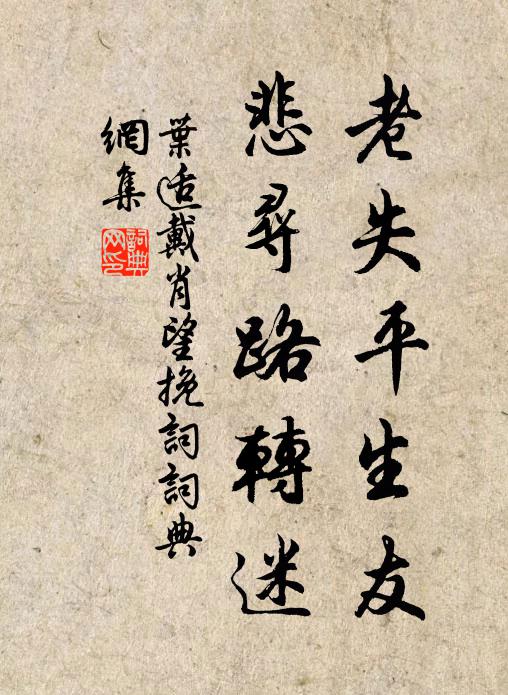 老失平生友
悲尋路轉迷
葉适戴肖望挽詞詞典
網集
詞典
网印